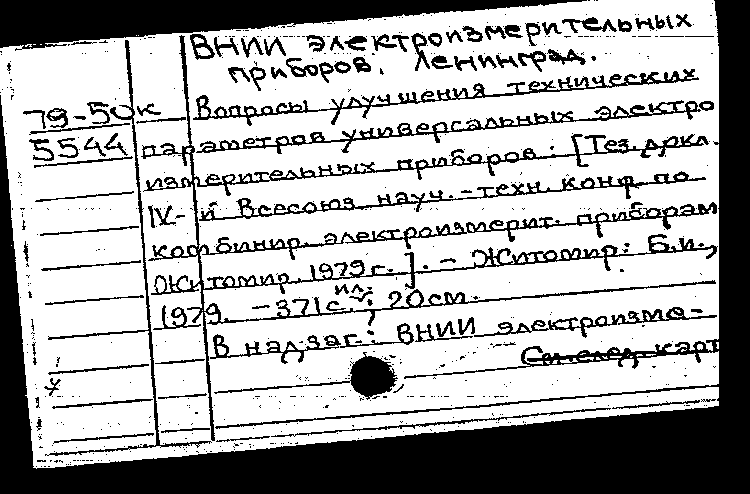 ВНИИ электроизмерительных
приборов. Ленинград.
79-50к Вопросы улучшения технических
5544 параметров универсальных электро
измерительных приборов: [Тез. докл.
IV-й Всесоюз. науч.-техн. конф. по
комбинир. электроизмерит. приборам
Житомир. 1979 г.]. - Житомир: Б.и.,
1979. - 371 с. ил.; 20 см.
В надзаг.: ВНИИ электроизме-
См. след. карт